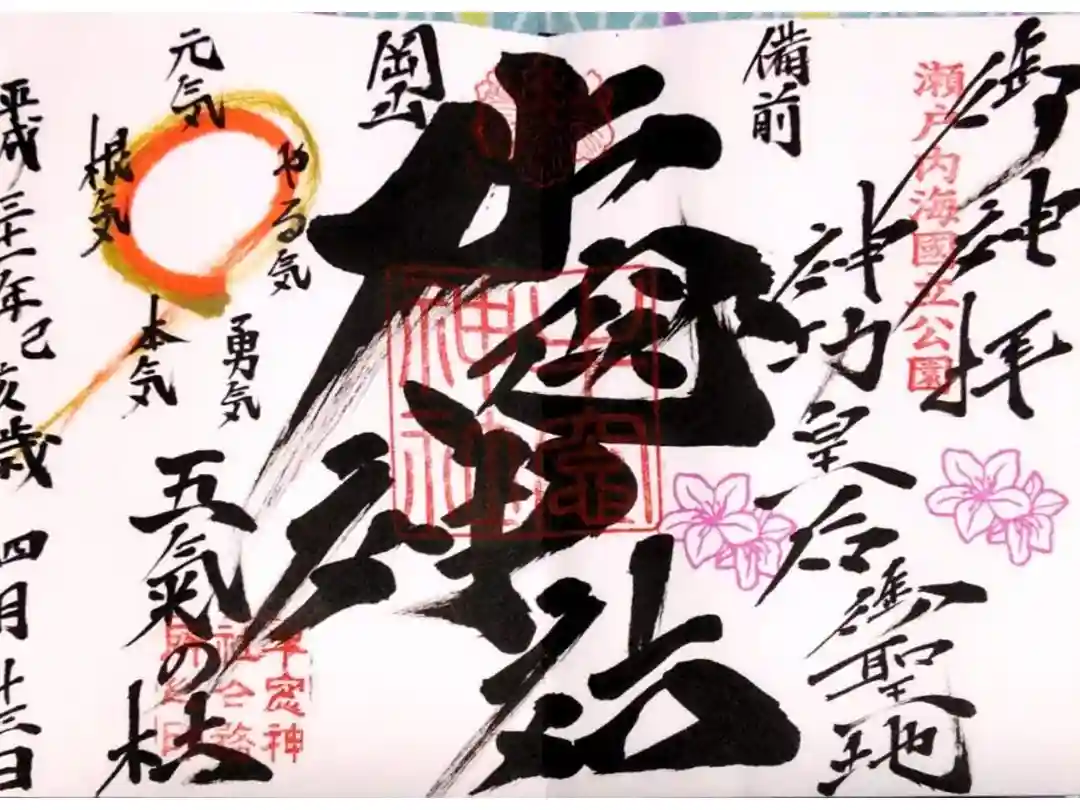 御神拝
瀬戸内海國立公園
備前
神功皇后御聖地
牛窓神社
岡山
元気
やる気
根気
本気
勇気
五氣の杜
平成三十一年己亥歳 四月廿三日